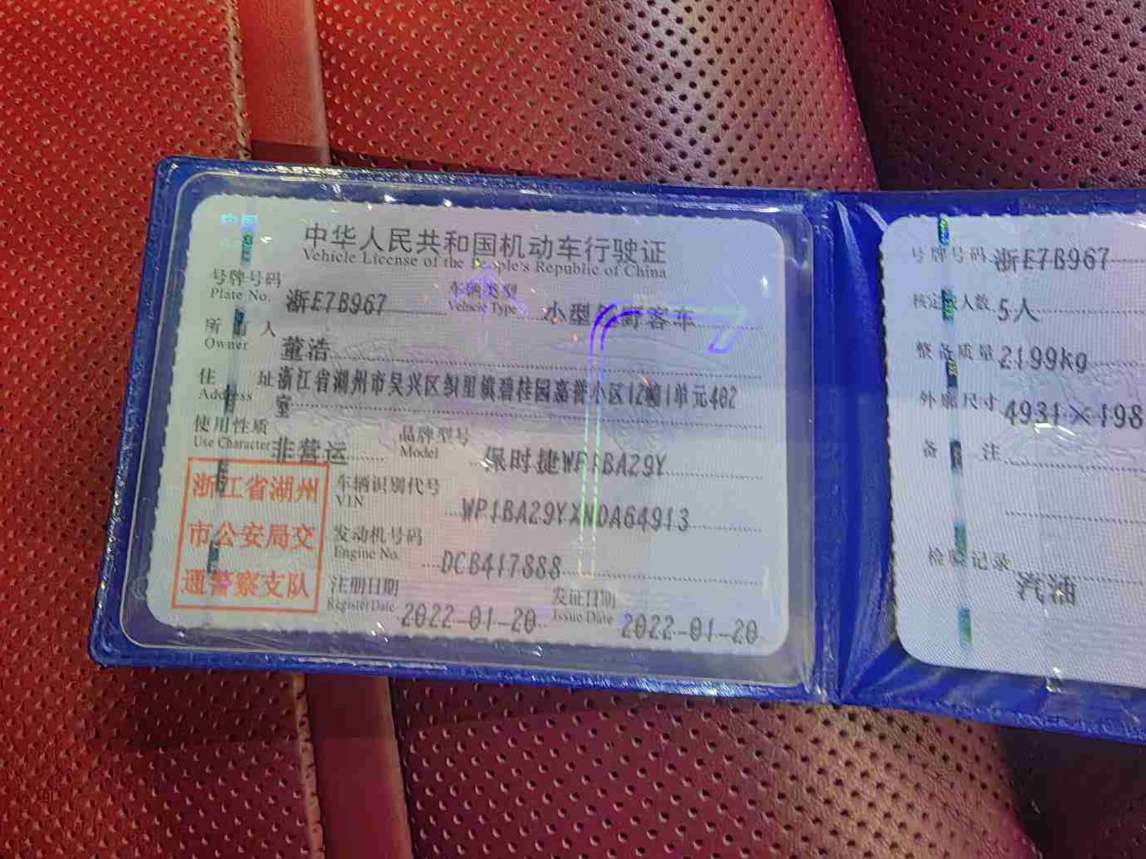 中国
中华人民共和国机动车行驶证
Vehicle License of the People's Republic of China
号牌号码 浙E7B967 车辆类型 小型越野客车
Plate No. Vehicle Type
所有人 董浩
Owner
住址 浙江省湖州市吴兴区织里镇碧桂园嘉誉小区12幢1单元402
Address 室
使用性质 非营运 品牌型号 保时捷WP1BA29Y
Use Character Model
浙江省湖州
市公安局交
通警察支队
车辆识别代号 WP1BA29YXNDA64913
VIN
发动机号码 DCB417888
Engine No.
注册日期 2022-01-20 发证日期 2022-01-20
Register Date Issue Date
号牌号码 浙E7B967
核定载人数 5人
整备质量 2199kg
外廓尺寸 4931×198
备注
检验记录
汽油